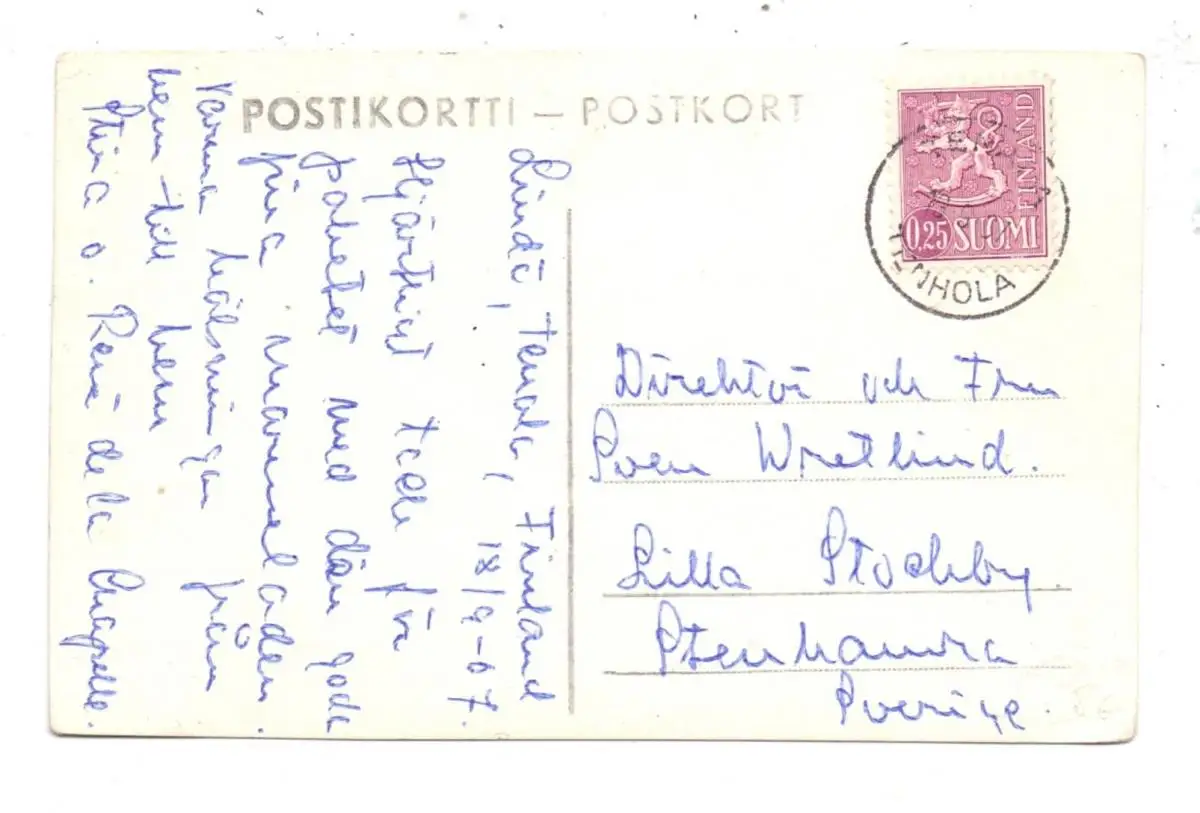 POSTIKORTTI — POSTKORT
FINLAND
0,25 SUOMI
Lindö, Tenala, Finland
18/9-67.
Hjärtligt tack för
paketet med den goda
fina marmeladen.
Varma hälsningar från
hem till hem
Stina o. René de la Chapelle.
Direktör och Fru
Sven Wretlind.
Lilla Stockby.
Stenhamra
Sverige.